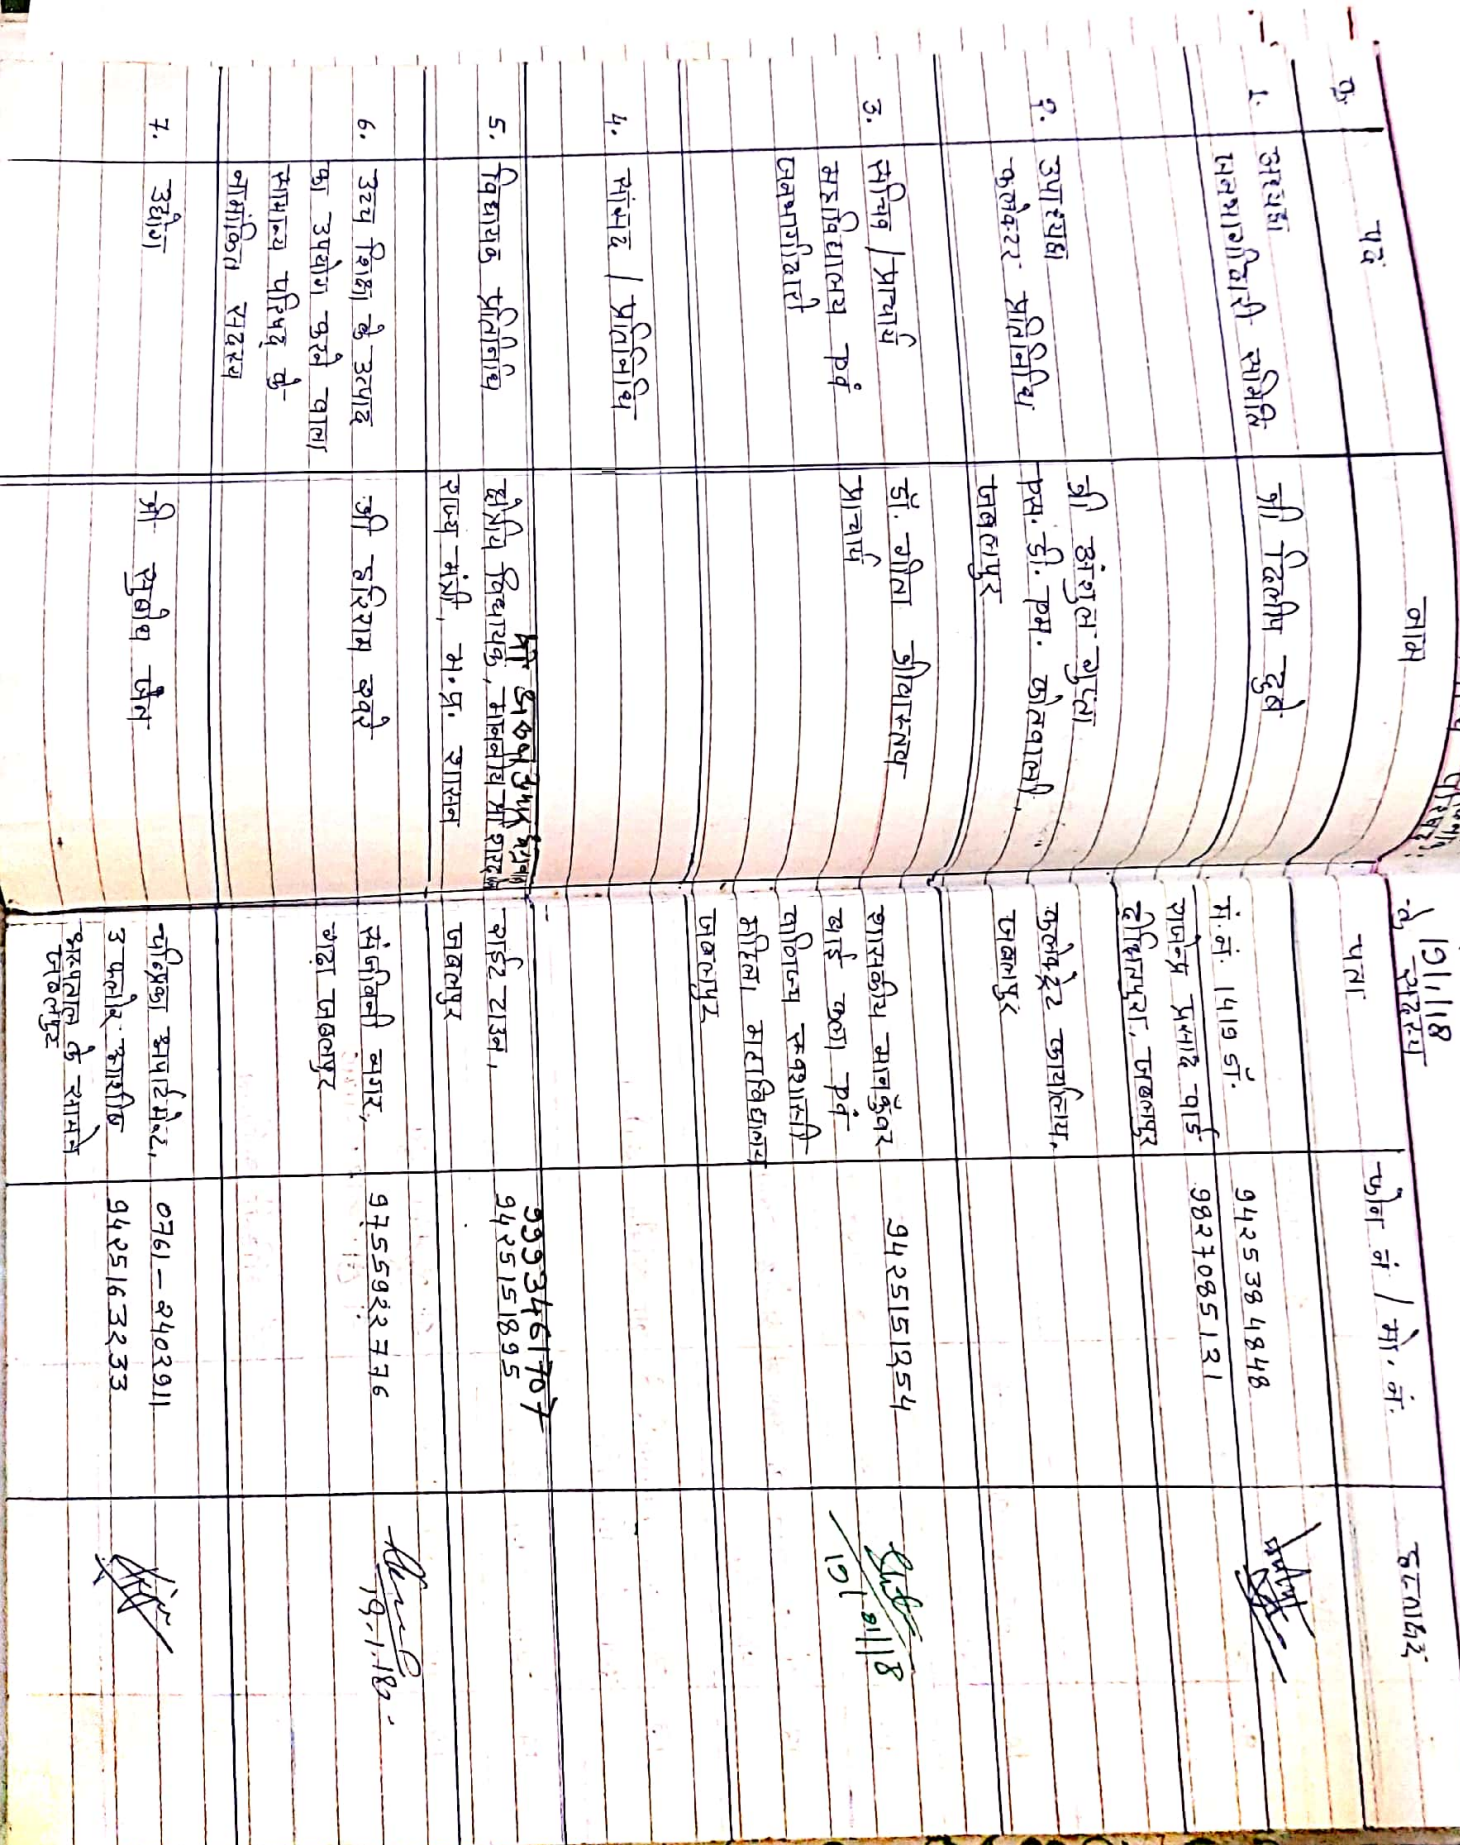 19/1/18
के सदस्य
क्र. पद नाम पता फोन नं / मो. नं. हस्ताक्षर
1. अध्यक्ष
जनभागीदारी समिति
श्री दिलीप दुबे
म.नं. 1419 डॉ.
राजेन्द्र प्रसाद वार्ड
दीक्षितपुरा, जबलपुर
9425384848
9827085121
२. उपाध्यक्ष
कलेक्टर प्रतिनिधि
श्री अंशुल गुप्ता
एस. डी. एम. कोतवाली,
जबलपुर
कलेक्ट्रेट कार्यालय,
जबलपुर
3. सचिव / प्राचार्य
महाविद्यालय एवं
जनभागीदारी
डॉ. गीता श्रीवास्तव
प्राचार्य
शासकीय मानकुंवर
बाई कला एवं
वाणिज्य स्वशासी
महिला महाविद्यालय
जबलपुर
9425151354
19/1/18
4. सांसद / प्रतिनिधि
5. विधायक प्रतिनिधि
क्षेत्रीय विधायक, माननीय श्री शरद जैन
राज्य मंत्री, म.प्र. शासन
राईट टाउन,
जबलपुर
9993461707
9425151895
6. उच्च शिक्षा के उत्पाद
का उपयोग करने वाला
सामान्य परिषद के
नामांकित सदस्य
श्री हरिराम खवरे
संजीवनी नगर,
गढ़ा जबलपुर
9755922776
19-1-18
7. उद्योग
श्री सुबोध जैन
चन्द्रिका अपार्टमेन्ट,
3 फ्लोर आशीष
अस्पताल के सामने
जबलपुर
0761-2402911
9425163233